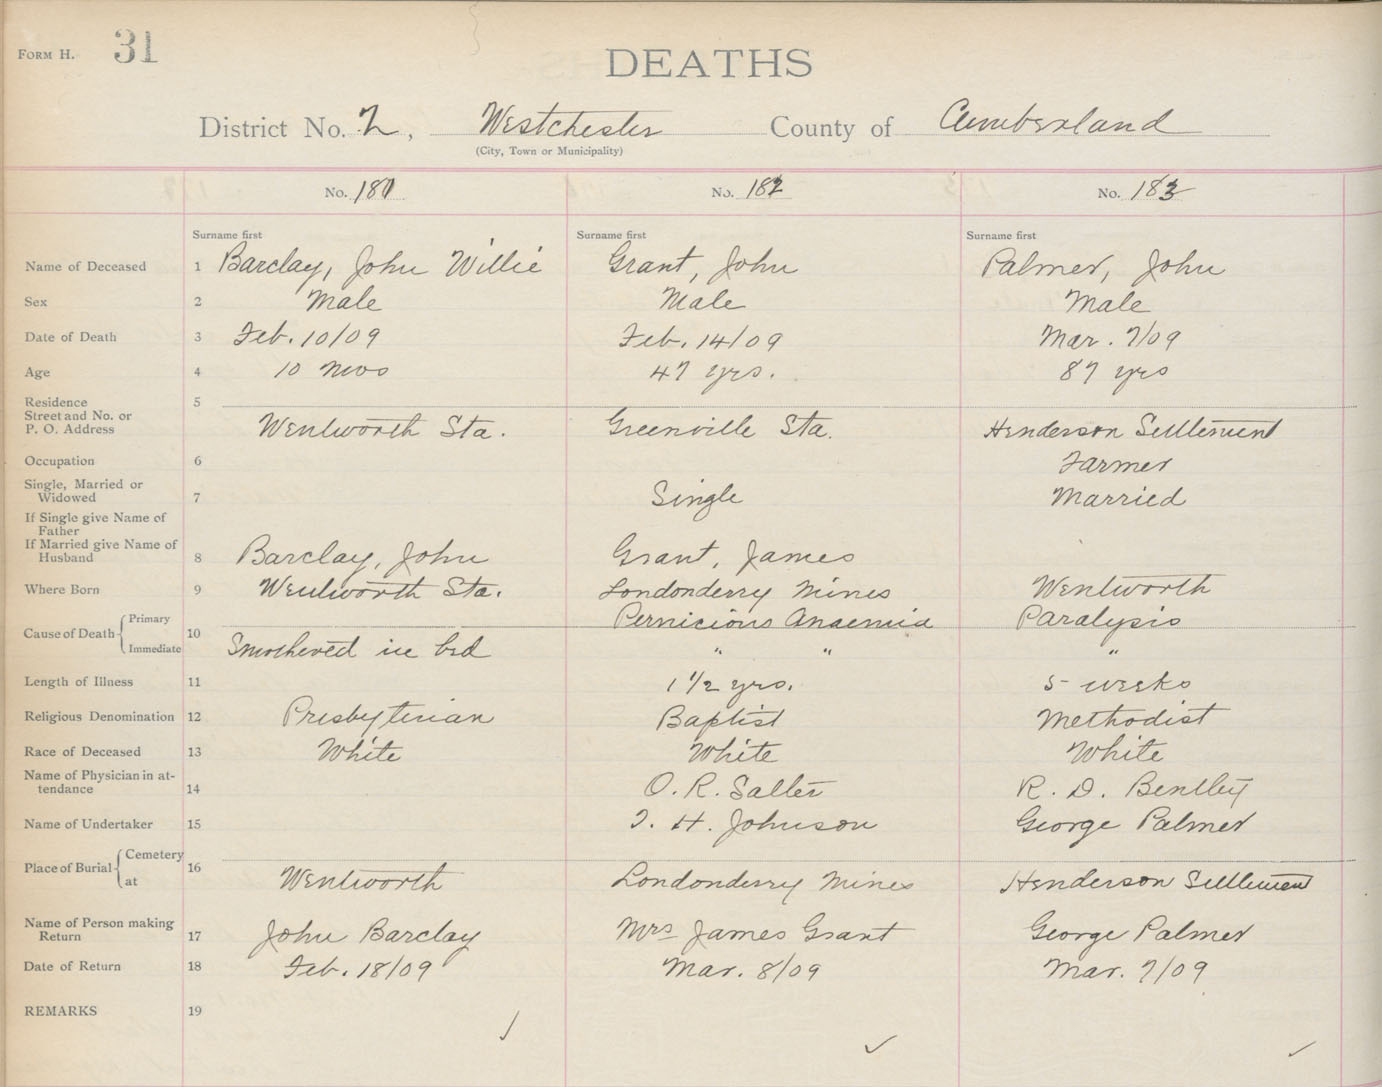 Form H. 31
DEATHS
District No. 2, Westchester County of Cumberland
(City, Town or Municipality)
No. 181 No. 182 No. 183
Surname first Surname first Surname first
Name of Deceased 1 Barclay, John Willie Grant, John Palmer, John
Sex 2 Male Male Male
Date of Death 3 Feb. 10/09 Feb. 14/09 Mar. 7/09
Age 4 10 mos 47 yrs. 87 yrs
Residence 5
Street and No. or
P. O. Address Wentworth Sta. Greenville Sta. Henderson Settlement
Occupation 6 Farmer
Single, Married or
Widowed 7 Single Married
If Single give Name of
Father
If Married give Name of
Husband 8 Barclay, John Grant, James
Where Born 9 Wentworth Sta. Londonderry Mines Wentworth
Cause of Death { Primary Pernicious Anaemia Paralysis
10 Immediate Smothered in bed " " "
Length of Illness 11 1 1/2 yrs. 5 weeks
Religious Denomination 12 Presbyterian Baptist Methodist
Race of Deceased 13 White White White
Name of Physician in at-
tendance 14 O. R. Salter R. D. Bentley
Name of Undertaker 15 T. H. Johnson George Palmer
Place of Burial { Cemetery 16
at Wentworth Londonderry Mines Henderson Settlement
Name of Person making
Return 17 John Barclay Mrs James Grant George Palmer
Date of Return 18 Feb. 18/09 Mar. 8/09 Mar. 7/09
REMARKS 19